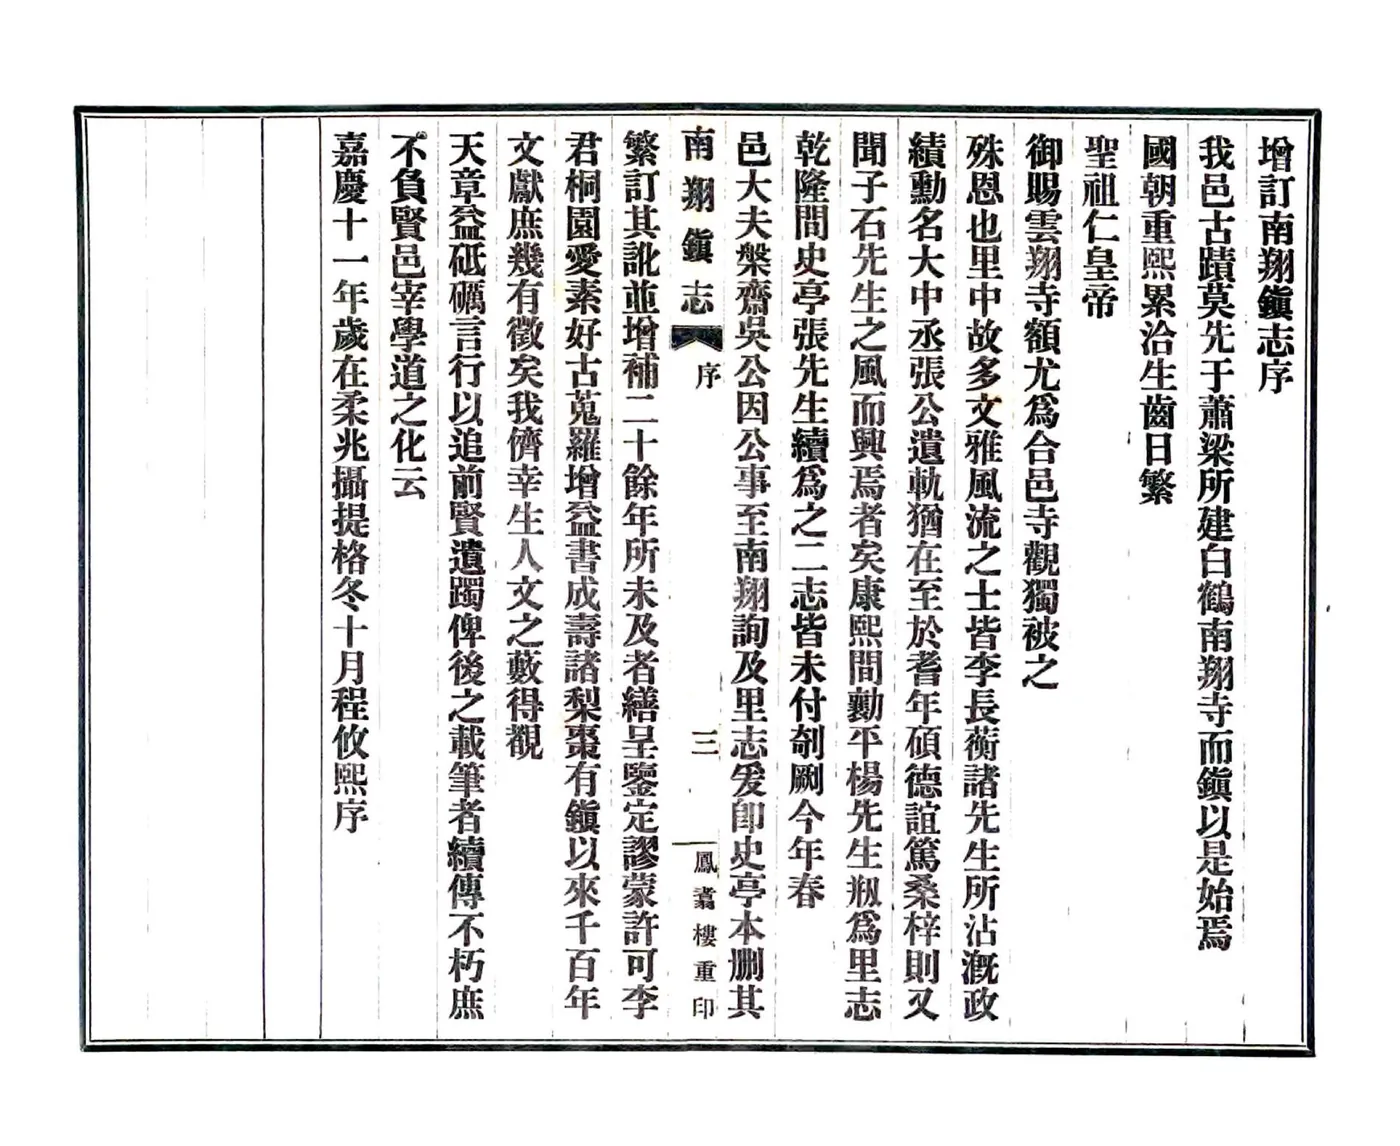 增訂南翔鎭志序
我邑古蹟莫先于蕭梁所建白鶴南翔寺而鎭以是始焉
國朝重熙累洽生齒日繁
聖祖仁皇帝
御賜雲翔寺額尤爲合邑寺觀獨被之
殊恩也里中故多文雅風流之士皆李長蘅諸先生所沾漑政
績勳名大中丞張公遺軌猶在至於耆年碩德誼篤桑梓則又
聞子石先生之風而興焉者矣康熙間勷平楊先生剏爲里志
乾隆間史亭張先生續爲之二志皆未付剞劂今年春
邑大夫槃齋吳公因公事至南翔詢及里志爰卽史亭本删其
南翔鎭志 序 三 鳳翥樓重印
繁訂其訛並增補二十餘年所未及者繕呈鑒定謬蒙許可李
君桐園愛素好古蒐羅增益書成壽諸梨棗有鎭以來千百年
文獻庶幾有徵矣我儕幸生人文之藪得觀
天章益砥礪言行以追前賢遺躅俾後之載筆者續傳不朽庶
不負賢邑宰學道之化云
嘉慶十一年歲在柔兆攝提格冬十月程攸熙序